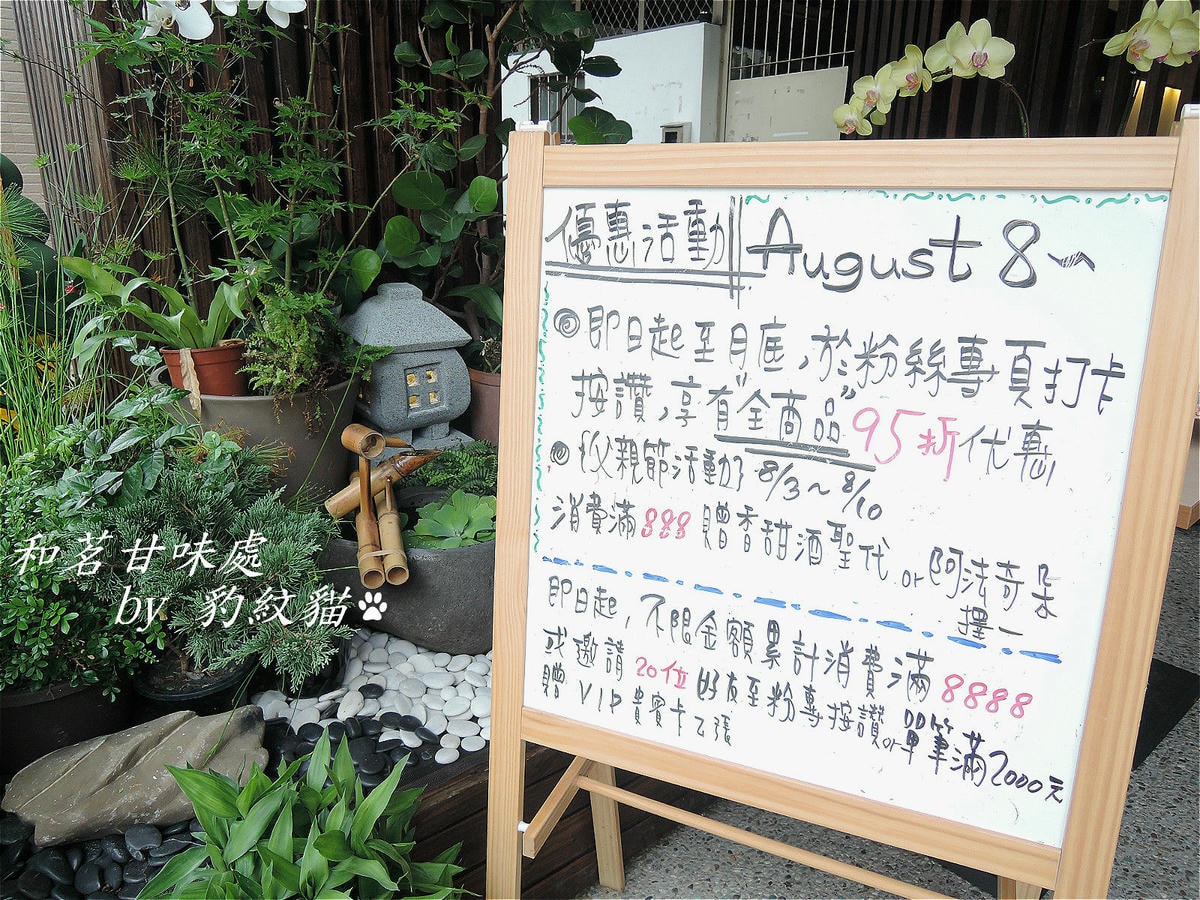 優惠活動 August 8~
◎即日起至月底,於粉絲專頁打卡
按讚,享有"全商品"95折优惠
◎父親節活動 8/3~8/10
消費滿888贈香甜酒聖代 or 阿法奇朵
擇一
即日起,不限金額累計消費滿8888
或邀請20位好友至粉專按讚or單筆滿2000元
贈VIP貴賓卡乙張
和茗甘味處
by 豹紋貓